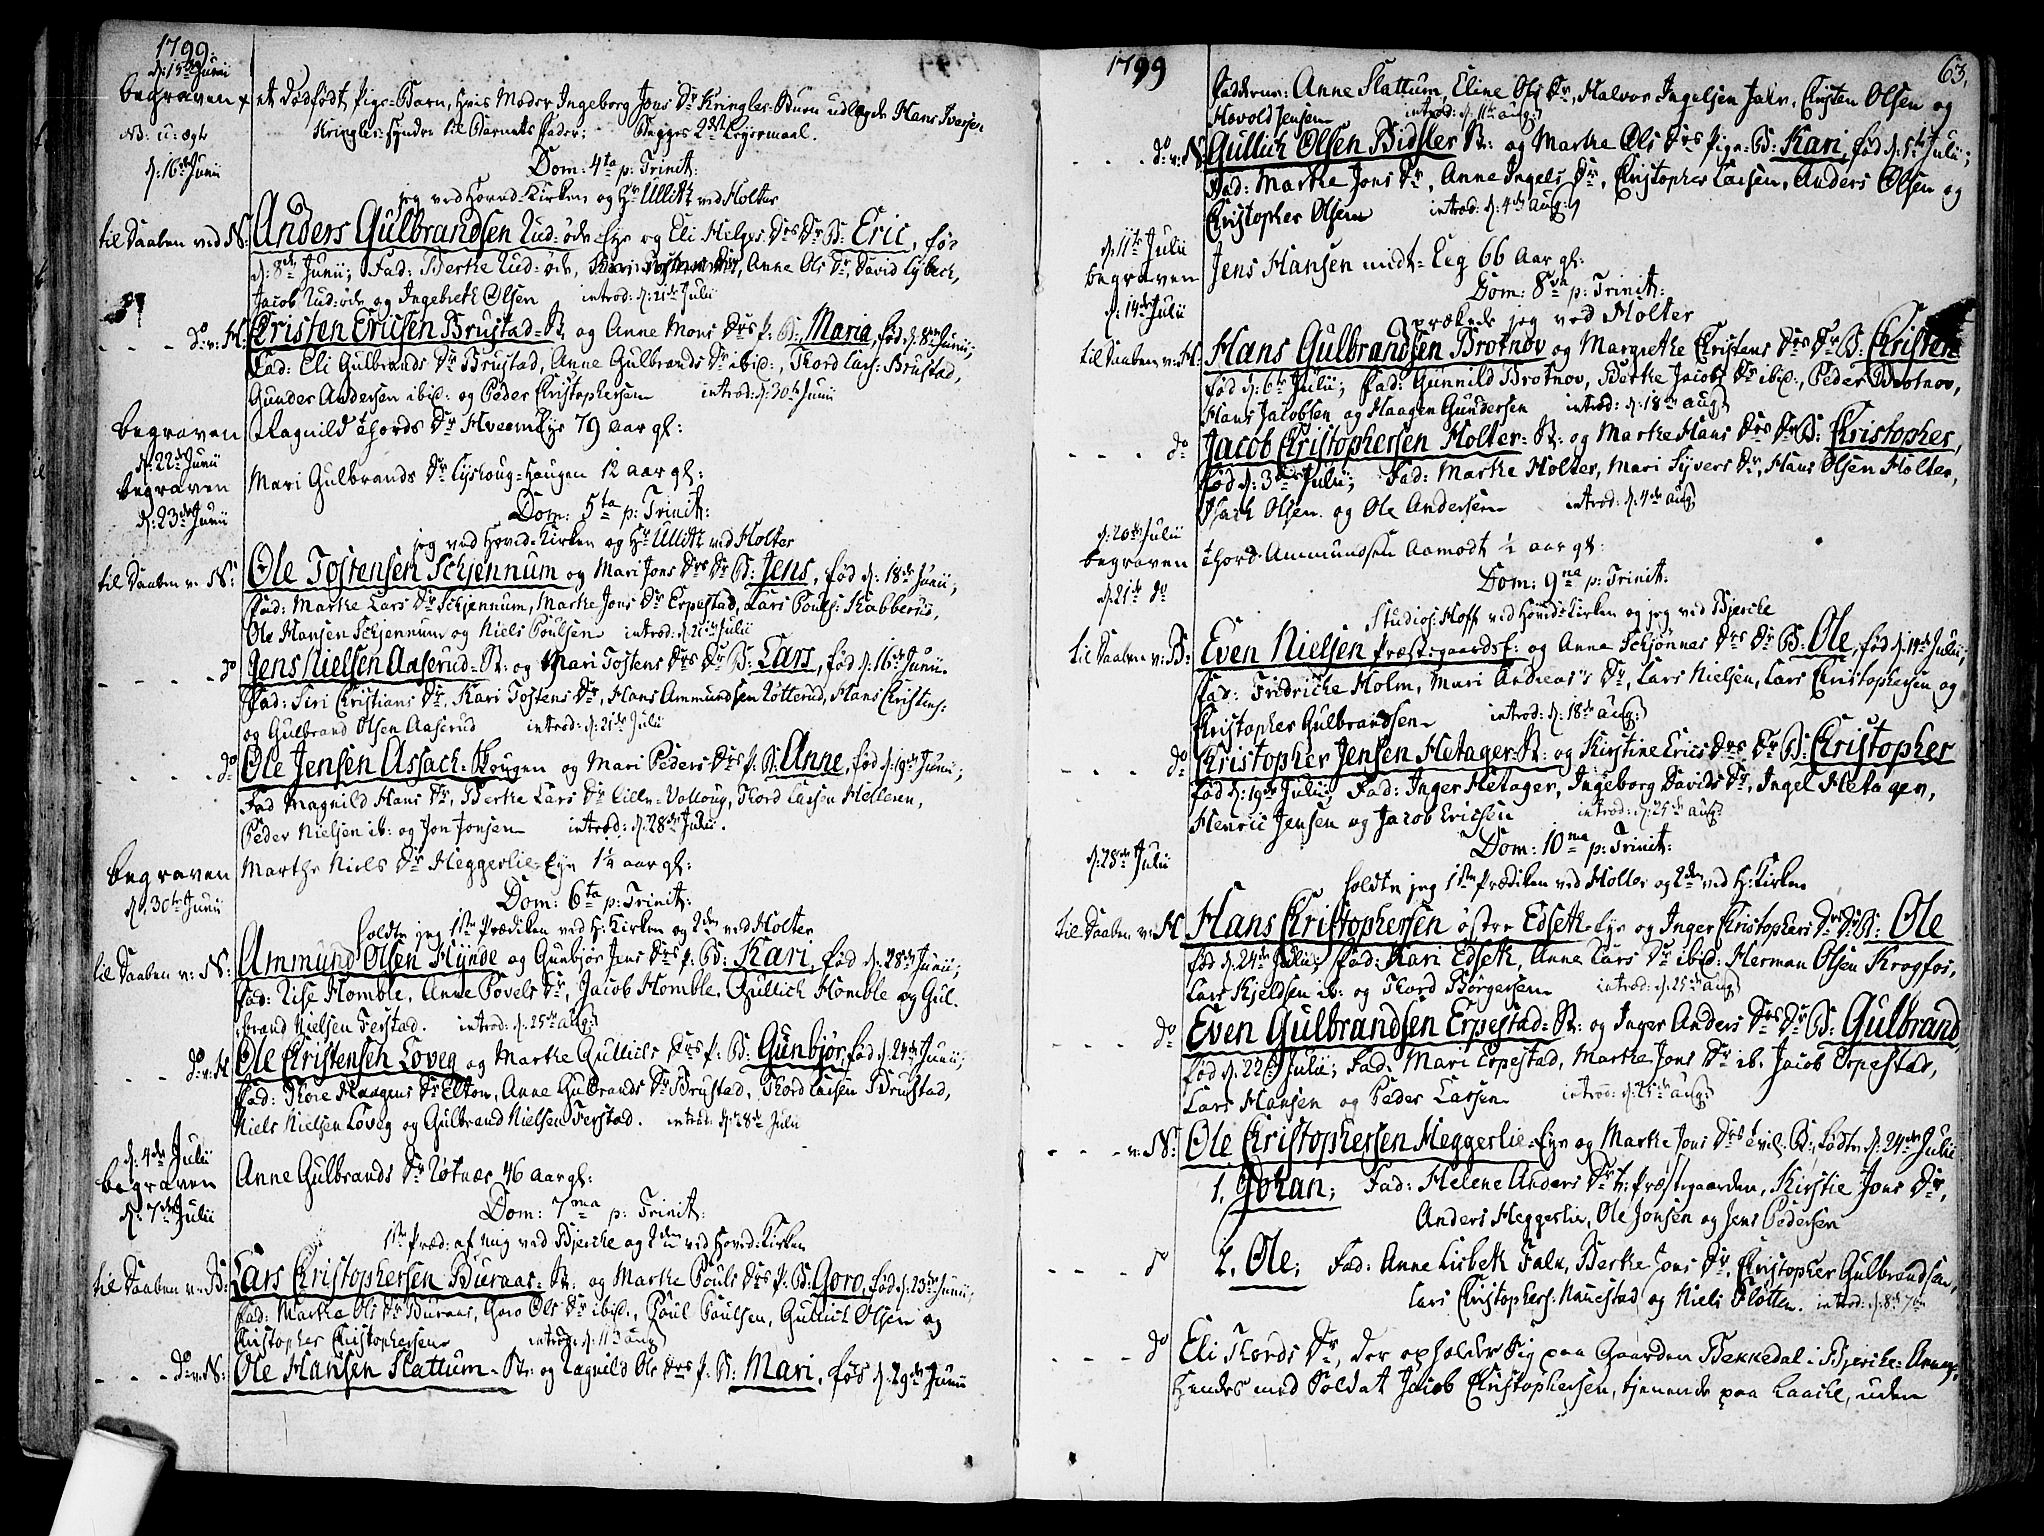 1799.
d: 15de Junii
begraven et dødfødt Pige-Barn, hvis Moder Ingeborg Jons Dr Kringler-Buen udlagde Hans Iversen
NB: u: ægte Kringler-hynden til Barnets Fader; Begges 2det Lejermaal.
d: 16de Junii Dom: 4ta p: Trinit:
jeg ved Hoved-Kirken og Hr Ullitz ved Holter
til Daaben ved N: Anders Gulbrandsen Rud-øde-Eye og Eli Helges Drs Dr B: Eric, fød
d: 8de Junii; Fad: Berthe Rud-øde, Anne Ols Dr, David Lybeck,
Jacob Rud-øde og Ingebreth Olsen introd: d: 21de Julii
do v: H: Christen Ericsen Brustad-B. og Anne Mons Drs P: B: Maria, fød d: 8de Junii;
Fad: Eli Gulbrands Dr Brustad, Anne Gulbrands Dr ibid:, Thord Lars: Brustad,
Gunder Andersen ibid: og Peder Christophersen introd: d: 30te Junii
begraven Ragnild Thords Dr Hveem Eye 79 aar gl:
d: 22de Junii
begraven Mari Gulbrands Dr Lyshoug-Haugen 12 aar gl:
d: 23de Junii Dom: 5ta p: Trinit:
jeg ved Hoved-Kirken og Hr Ullitz ved Holter
til Daaben v: N: Ole Tostensen Schjennum og Mari Jons Drs Dr B: Jens, fød d: 18de Junii;
Fad: Marthe Lars Dr Schjennum, Marthe Jons Dr Erpestad, Lars Pouls: Kabberud,
Ole Hansen Schjennum og Niels Poulsen introd: d: 21de Julii
do Jens Nielsen Aaserud-B: og Mari Tostens Drs Dr B: Lars, fød d: 16de Junii.
Fad: Siri Christians Dr, Kari Tostens Dr, Hans Ammundsen Rotterud, Hans Christens:
og Gulbrand Olsen Aaserud introd: d: 21de Julii
do Ole Jensen Assach-Hougen og Mari Peders Drs P: B: Anne, fød d: 19de Junii;
Fad Magnild Hans Dr, Berthe Lars Dr Lille-Volloug, Thord Larsen Helleren,
Peder Nielsen ib: og Jon Jonsen introd: d: 28de Julii.
begraven Marthe Niels Dr Heggerlie-Eye 1¼ aar gl:
d: 30te Junii Dom: 6ta p: Trinit:
holdte jeg 1ste Prædiken ved H: Kirken og 2den ved Holter
til Daaben v: N: Ammund Olsen Hynde og Gunbjør Jens Drs P: B: Kari, fød d: 28de Junii;
Fad: Lise Homble, Anne Povels Dr, Jacob Homble, Gullich Homble og Gul-
brand Nielsen Ferstad. introd: d: 25de aug:
do v: H: Ole Christensen Loveg og Marthe Gullichs Drs P: B: Gunbjør, fød d: 24de Junii;
Fad: Thore Haagens Dr Elton, Anne Gulbrands Dr Brustad, Thord Larsen Brustad,
Niels Nielsen Loveg og Gulbrand Nielsen Ferstad. introd: d: 28de Julii
d: 4de Julii
begraven Anne Gulbrands Dr Rotnes 46 aar gl:
d: 7de Julii Dom: 7ma p: Trinit:
1ste Præd: af mig ved Bjerche og 2den ved Hoved-Kirken
til Daaben v: B: Lars Christophersen Buraas-B: og Marthe Pouls Drs P: B: Goro, fød d: 23de Junii;
Fad: Marthe Ols Dr Buraas, Goro Ols Dr ibid:, Poul Poulsen, Gullich Olsen og
Christopher Christophersen introd: d: 11te aug:
do v: N: Ole Hansen Slattum-B: og Ragnild Ols Drs P: B: Mari, fød d: 29de Junii
1799
63.
Fadderne: Anne Slattum, Eline Ols Dr, Halvor Ingelsen Jahr, Christen Olsen og
Havold Jensen introd: d: 11te aug:
do v: N: Gullich Olsen Bidsler B: og Marthe Ols Drs Pige-B: Kari, fød d: 5te Julii;
Fad: Marthe Jons Dr, Anne Ingels Dr, Christopher Larsen, Anders Olsen og
Christopher Olsen introd: d: 4de aug:
d: 11te Julii
begraven Jens Hansen midt-Eeg 66 Aar gl:
d: 14de Julii Dom: 8va p: Trinit:
prækede jeg ved Holter
til Daaben v: H: Hans Gulbrandsen Brotnov og Margrethe Christens Drs Dr B: Christen
fød d: 6te Julii; Fad: Gunnild Brotnov, Berthe Jacobs Dr ibid:, Peder Brotnov,
Hans Jacobsen og Haagen Gundersen introd: d: 18de aug:
do Jacob Christophersen Holter-B: og Marthe Hans Drs Dr B: Christopher,
fød d: 3de Julii; Fad: Marthe Holter, Mari Syvers Dr, Hans Olsen Holter,
Isach Olsen og Ole Andersen introd: d: 4de aug:
d: 20de Julii
begraven Thord Ammundsen Aamodt ½ aar gl:
d: 21de do Dom: 9na p: Trinit:
Studios: Hoff ved Hoved-Kirken og jeg ved Bjerche
til Daaben v: B: Even Nielsen Præstegaards-: og Anne Schjønnes Drs Dr B: Ole, fød d: 14de Julii;
Fad: Fridriche Holm, Mari Andreas's Dr, Lars Nielsen, Lars Christophersen og
Christopher Gulbrandsen introd: d: 18de aug:
do Christopher Jensen Hetager-B: og Kirstine Erics Drs Dr B: Christopher
fød d: 19de Julii; Fad: Inger Hetager, Ingeborg Davids Dr, Ingel Hetager,
Henric Jensen og Jacob Ericsen introd: d: 25de aug:
d: 28de Julii Dom: 10ma p: Trinit:
holdte jeg 1ste Prædiken ved Holter og 2den ved H: Kirken
til Daaben v: H Hans Christophersen østre Edseth Eye og Inger Christophers Drs Dr B: Ole
fød d: 24de Julii; Fad: Kari Edseth, Anne Lars Dr ibid: Herman Olsen Krogfos,
Lars Kjeldsen ib: og Thord Børgersen introd: d: 25de aug:
do Even Gulbrandsen Erpestad-B: og Inger Anders Drs Dr B: Gulbrand,
fød d: 22de Julii; Fad: Mari Erpestad, Marthe Jons Dr ib. Jacob Erpestad,
Lars Hansen og Peder Larsen introd: d: 25de aug:
v: N: Ole Christophersen Heggerlie-Eye og Marthe Jons Drs tvil: B: fødte d: 24de Julii
1. Johan; Fad: Helene Anders Dr v: Præstegaarden, Kirstie Jons Dr,
Anders Heggerlie, Ole Jonsen og Jens Pedersen
do 2. Ole; Fad: Anne Lisbeth Falk, Berthe Jons Dr, Christopher Gulbrandsen,
Lars Christophers: Nannestad og Niels Slotten. introd: d: 8de 7br
do Eli Thords Dr, der opholder Sig paa Gaarden Bekkedal i Bjerche-Annex,
hendes med Soldat Jacob Christophersen, tjenende paa Laache, uden